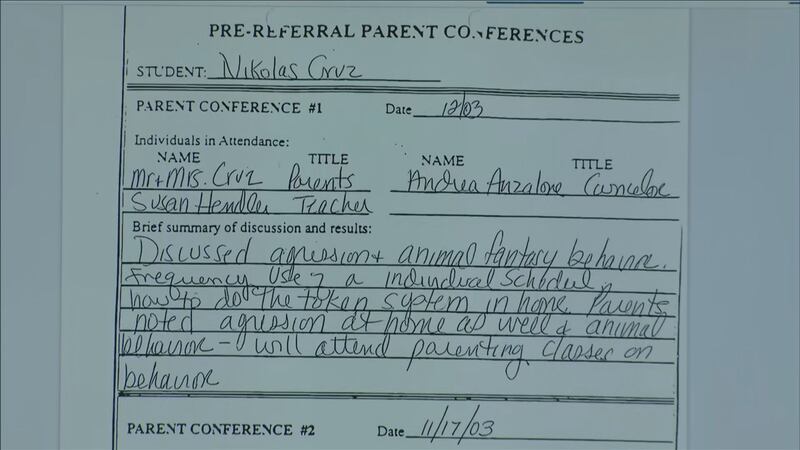 PRE-REFERRAL PARENT CONFERENCES
STUDENT: Nikolas Cruz
PARENT CONFERENCE #1 Date 12/03
Individuals in Attendance:
NAME TITLE NAME TITLE
Mr + Mrs. Cruz Parents Andrea Anzalone Councelor
Susan Hendler Teacher
Brief summary of discussion and results:
Discussed agression + animal fantasy behavior.
Frequency use of a individual schedule,
how to do the token system in home. Parents
noted agression at home as well & animal
behavior - will attend parenting classes on
behavior
PARENT CONFERENCE #2 Date 11/17/03